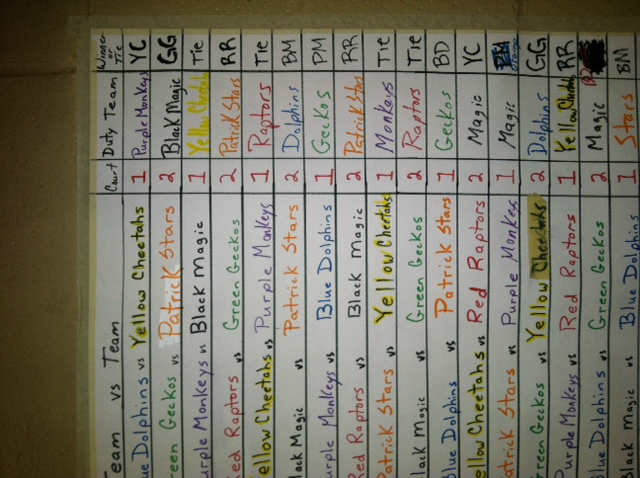 Team vs Team Court Duty Team Winner or Tie
ue Dolphins vs Yellow Cheetahs 1 Purple Monkeys YC
reen Geckos vs Patrick Stars 2 Black Magic GG
urple Monkeys vs Black Magic 1 Yellow Cheetahs Tie
ed Raptors vs Green Geckos 2 Patrick Stars RR
ellow Cheetahs vs Purple Monkeys 1 Raptors Tie
lack Magic vs Patrick Stars 2 Dolphins BM
urple Monkeys vs Blue Dolphins 1 Geckos PM
Red Raptors vs Black Magic 2 Patrick Stars RR
Patrick Stars vs Yellow Cheetahs 1 Monkeys Tie
lack Magic vs Green Geckos 2 Raptors Tie
Blue Dolphins vs Patrick Stars 1 Geckos BD
ellow Cheetahs vs Red Raptors 2 Magic YC
atrick Stars vs Purple Monkeys 1 Magic
reen Geckos vs Yellow Cheetahs 2 Dolphins GG
urple Monkeys vs Red Raptors 1 Yellow Cheetahs RR
Blue Dolphins vs Green Geckos 2 Magic
Black Magic vs Blue Dolphins 1 Stars BM